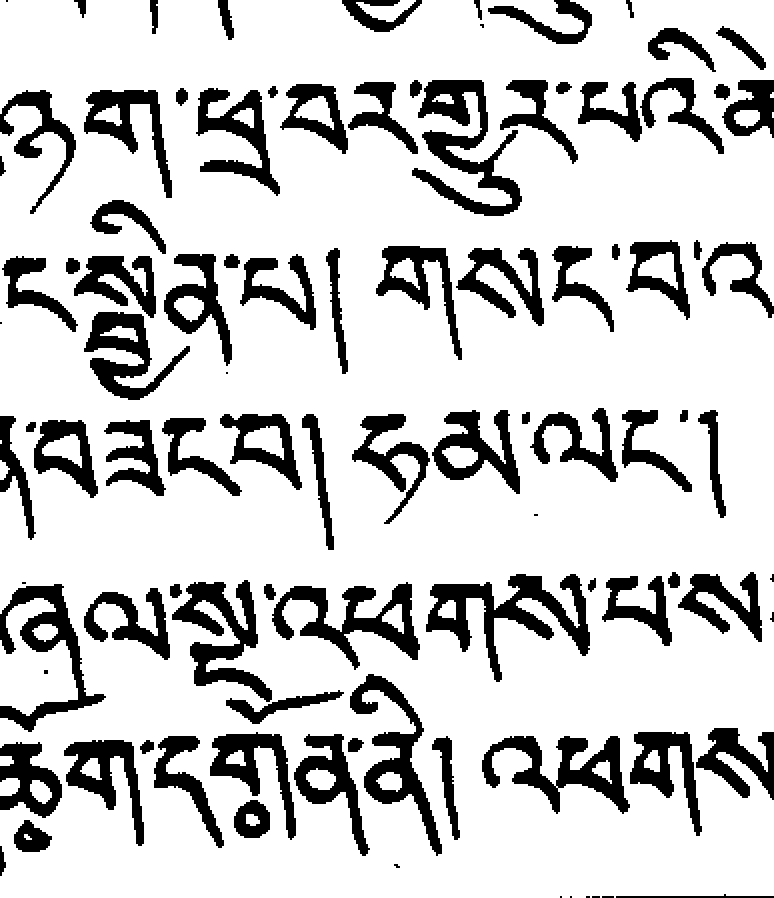 ཉག་ཕྲ་བར་གྱུར་པའི་
ང་སྦྱིན་པ། གསང་བའ
ན་བཟང་བ། ཧམ་ལང་།
ཞལ་སྔ་འཕགས་པ་ས་
ཆོག་དགོན་ནི། འཕགས